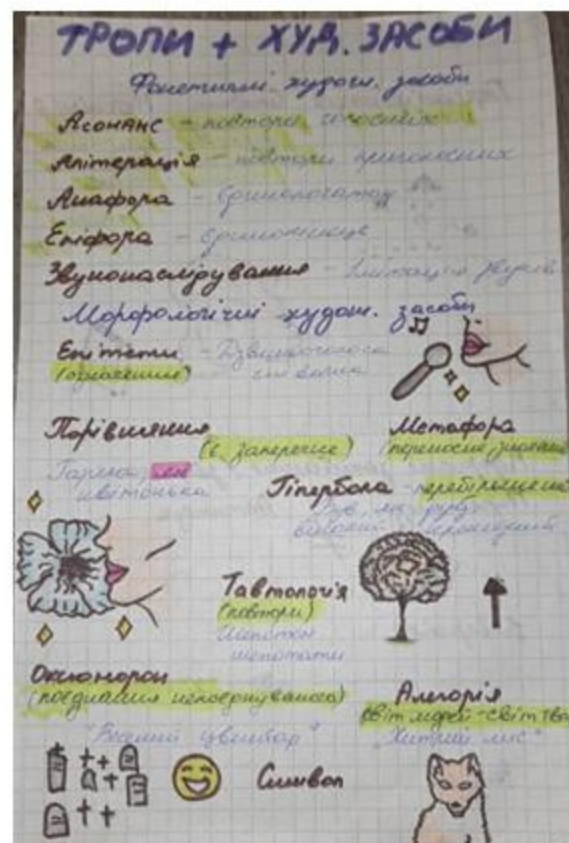 ТРОПИ + ХУД. ЗАСОБИ
Фонетичні худож. засоби
Асонанс - повтори голосних
Алітерація - повтори приголосних
Анафора - єдинопочаток
Епіфора -
Звуконаслідування - імітація звуків
Морфологічні худож. засоби
Епітети - Дзвінкоголоса
(означення)
Порівняння
(є заперечне)
Гарна, як
квітонька
Метафора
(переносне значення
Гіпербола - перебільшення
Був, як дуб
високий
Тавтологія
(повтори)
шепотати
Оксиморон
(поєднання непоєднуваного)
"Веселий цвинтар"
Алегорія
світ людей - світ тва
"Хитрий лис"
Символ